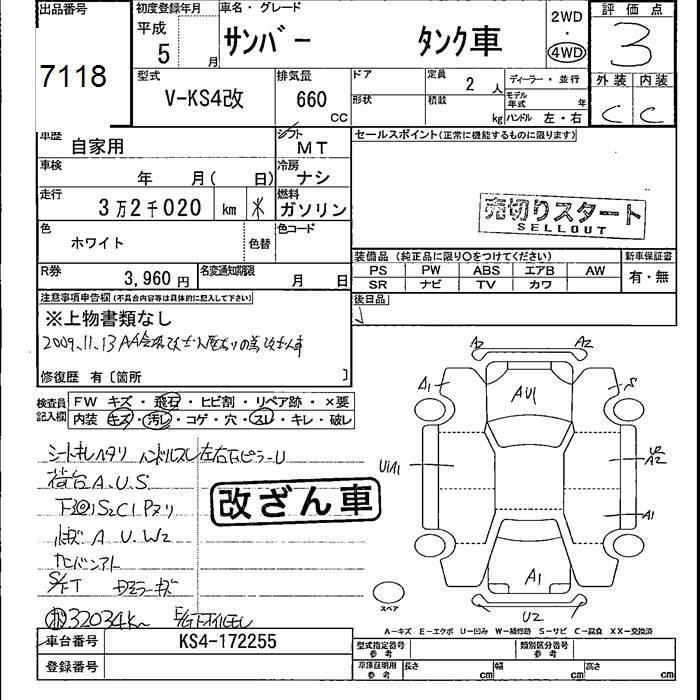 出品番号
7118
初度登録年月
平成
5 月
車名・グレード
サンバー タンク車
2WD
・
4WD
評価点
3
型式
V-KS4改
排気量
660
CC
ドア
形状
定員
2 人
積載
kg
ディーラー・並行
モデル
年式 年
ハンドル 左・右
外装 内装
C C
車歴
自家用
シフト
MT
セールスポイント(正常に機能するものに限ります)
車検
年 月( 日)
冷房
ナシ
走行
3万2千020 km
燃料
ガソリン
売切りスタート
SELLOUT
色
ホワイト
色替
色コード
装備品 (純正品に限り〇をつけてください)
新車保証書
PS PW ABS エアB AW
SR ナビ TV カワ
有・無
R券
3,960円
名変通知期限
月 日
後日品
注意事項申告欄(不具合内容等は具体的に記入して下さい)
※上物書類なし
2009.11.13
修復歴 有〔箇所 〕
検査員
記入欄
FW キズ・飛石・ヒビ割・リペア跡・×要
内装 キズ・汚レ・コゲ・穴・スレ・キレ・破レ
シートキレヘタリ ハンドルスレ 左右右ピラーU
荷台A.U.S.
A U W2
S/FT
32034km
改ざん車
A2 A2
A1 S
AU1
UiA1
U2
A2
A1
A1
U2
スペア
A-キズ E-エクボ U-凹み W-補修跡 S-サビ C-腐食 XX-交換済
車台番号
KS4-172255
登録番号
型式指定番号
参考
類別区分番号
参考
車庫証明用
参考
長さ cm
幅 cm
高さ cm